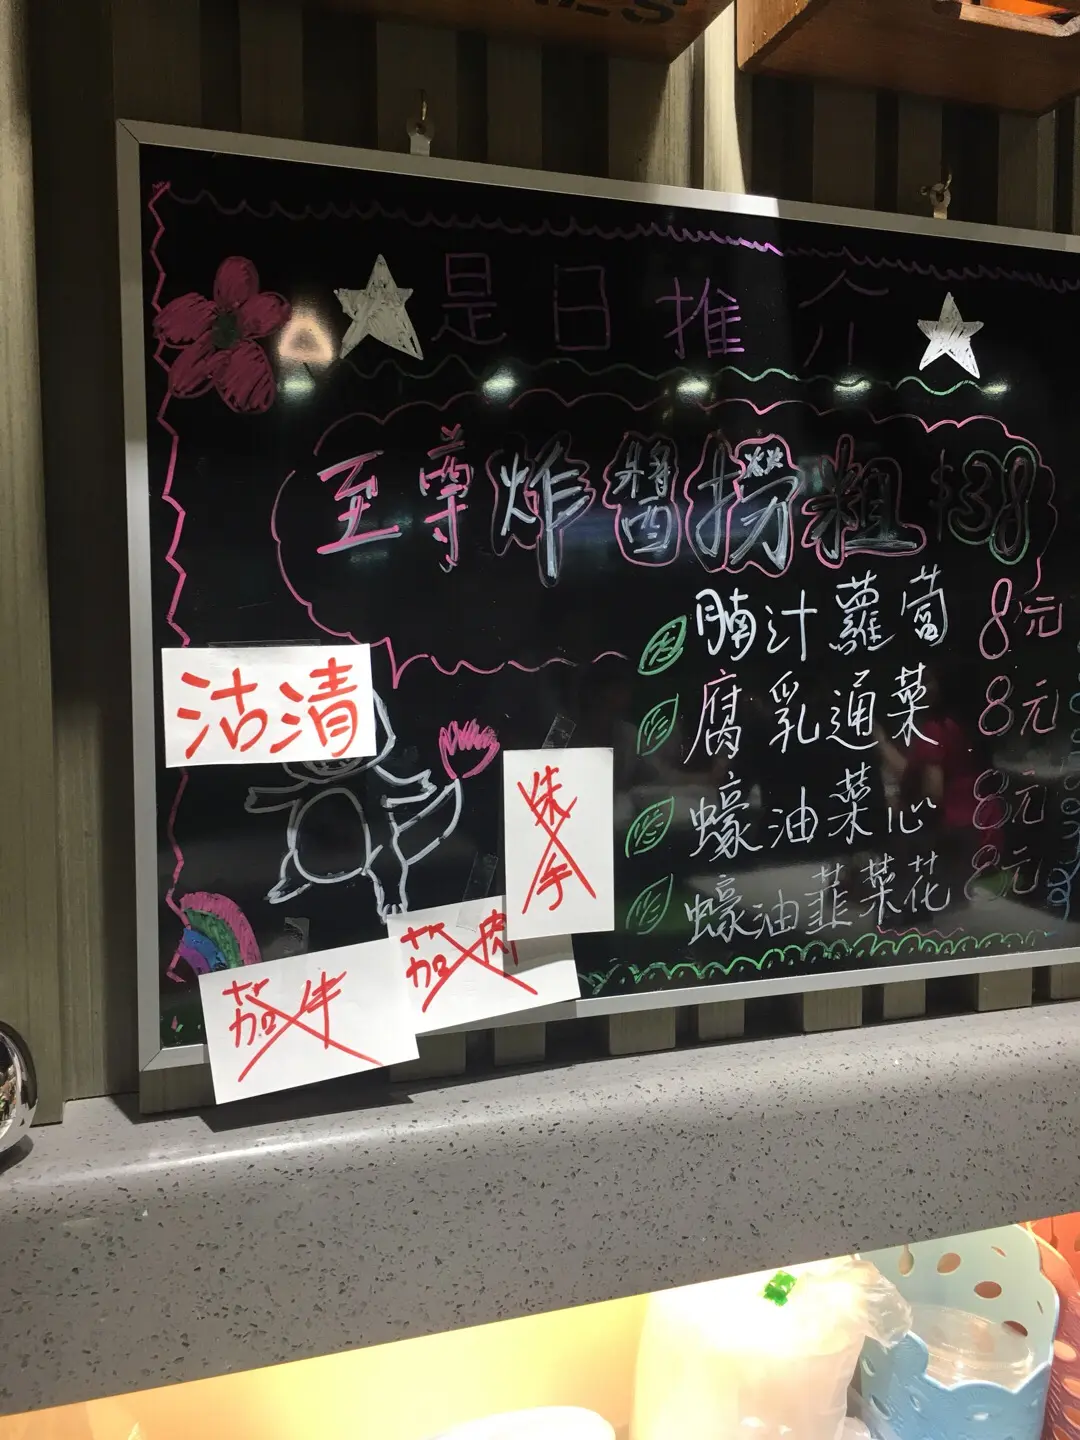 是日推介
至尊炸醬撈粗 $38
腩汁蘿蔔 8元
腐乳通菜 8元
蠔油菜心 8元
蠔油韮菜花 8元
沽清
珠手
茄肉
茄牛